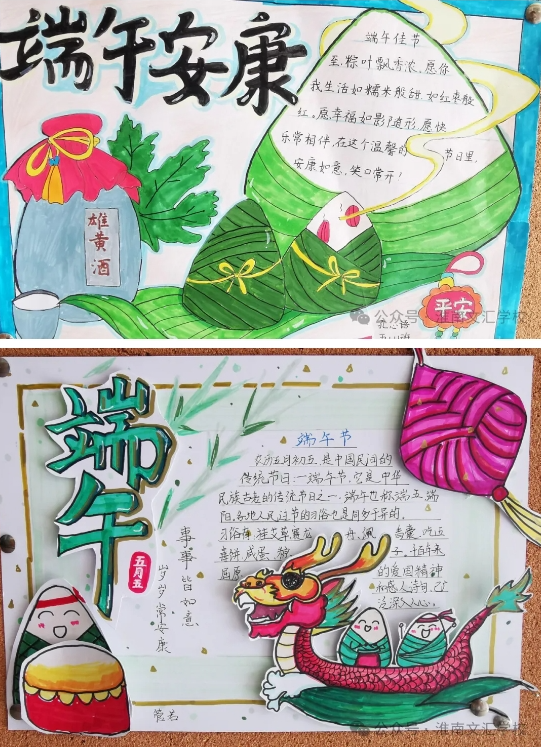 端午安康
端午佳节
至,粽叶飘香浓,愿你
我生活如糯米般甜,如红枣般
红,愿幸福如影随形,愿快
乐常相伴,在这个温馨的 节日里,
安康如意,笑口常开!
雄黄酒
平安
公众号·淮南文汇学校
端午
五月五
事事皆如意
岁岁常安康
端午节
农历五月初五,是中国民间的
传统节日——端午节,它是中华
民族古老的传统节日之一。端午也称端五,端
阳。各地人民过节的习俗也是
习俗有:挂艾草,赛龙 香囊,吃五
屈原
的爱国精神
泛深入人心。
公众号·淮南文汇学校